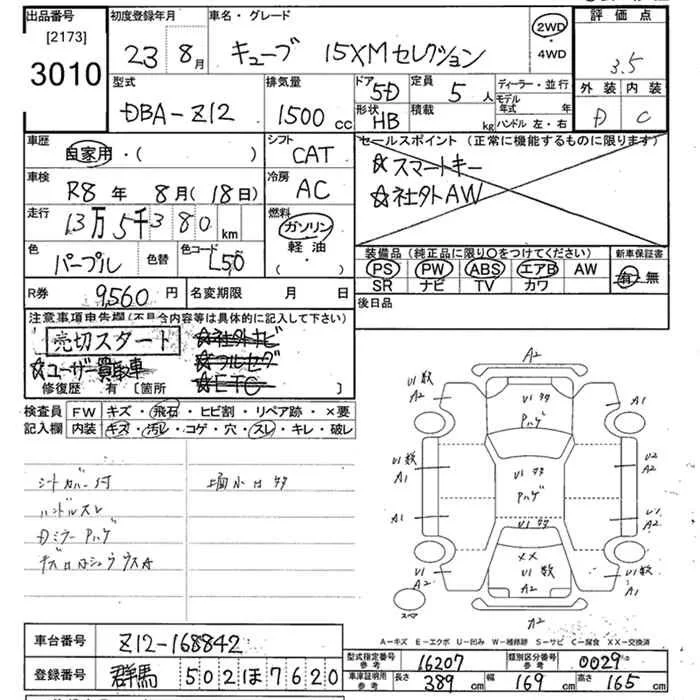 出品番号
[2173]
3010
初度登録年月
23 8月
車名・グレード
キューブ 15XMセレクション
2WD
・
4WD
評価点
3.5
外装 内装
D C
型式
DBA-Z12
排気量
1500 cc
ドア
5D
形状
HB
定員
5 人
積載
kg
ディーラー・並行
モデル年式 年
ハンドル 左・右
車歴
自家用・( )
シフト
CAT
セールスポイント (正常に機能するものに限ります)
☆スマートキー
☆社外AW
車検
R8 年 8月(18日)
冷房
AC
走行
13万5千380km
燃料
ガソリン
軽油
( )
色
パープル
色替
色コード
L50
装備品(純正品に限り○をつけてください)
PS PW ABS エアB AW
SR ナビ TV カワ
新車保証書
有・無
R券
9,560円
名変期限 月 日
後日品
注意事項申告欄(不具合内容等は具体的に記入して下さい)
売切スタート
☆ユーザー買取車
☆社外ナビ
☆フルセグ
☆ETC
修復歴 有 [箇所 ]
検査員
記入欄
FW キズ・飛石・ヒビ割・リペア跡・×要
内装 キズ・汚レ・コゲ・穴・スレ・キレ・破レ
シートカバー付
ハンドルスレ
Dミラー Pハゲ
A2
U1 数
A2
U1 タタ
Pハゲ
A1
U1 数
A1
U1 タタ
Pハゲ
U2
A2
A1
U1 タタ
U1
A2
U1
A2
XX
U1 数
A2
U1 数
A1
スペア
A2
A-キズ E-エクボ U-凹み W-補修跡 S-サビ C-腐食 XX-交換済
車台番号
Z12-168842
登録番号
群馬 502 ほ 7620
型式指定番号
参考
16207
類別区分番号
参考
0029
車庫証明用
参考
長さ 389cm 幅 169cm 高さ 165cm